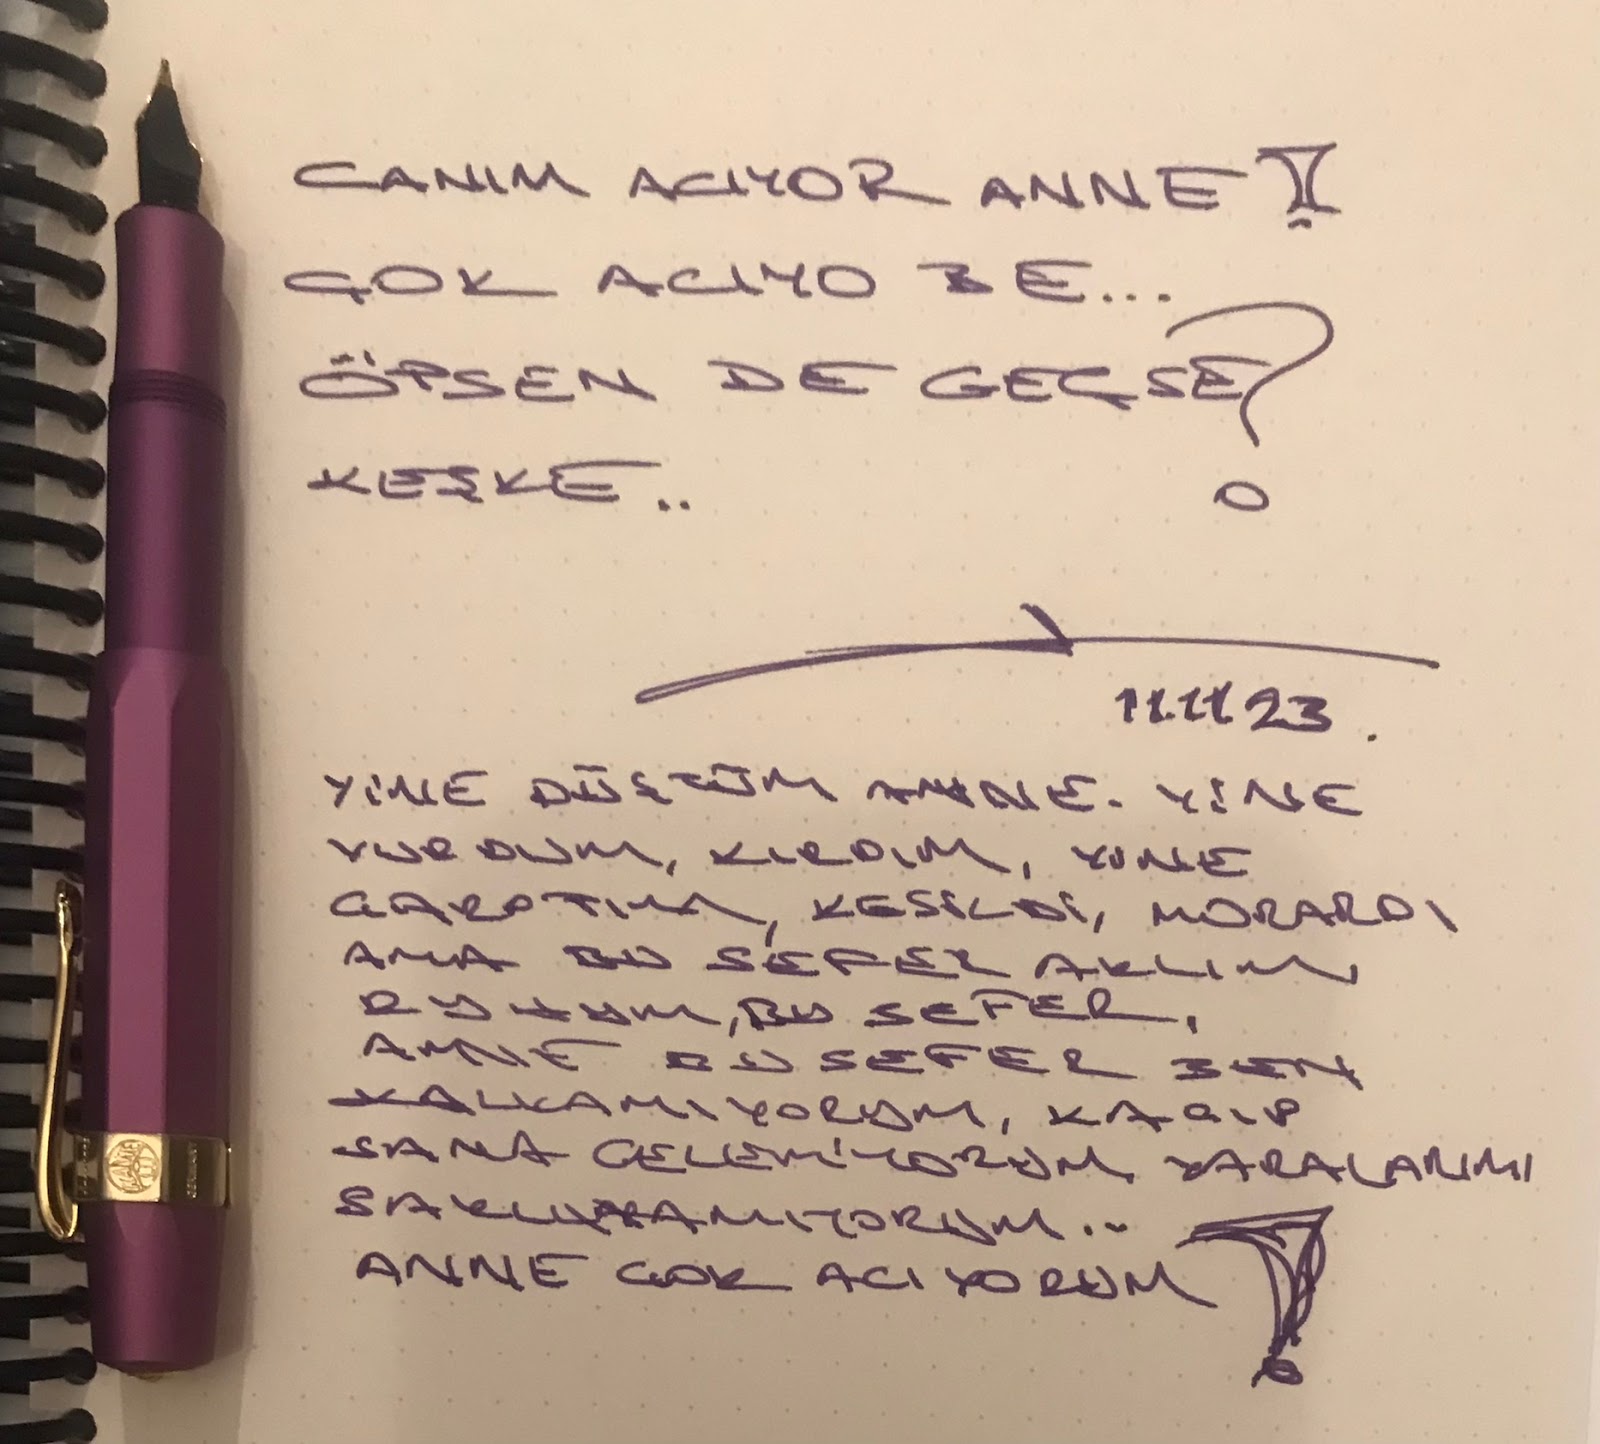 CANIM ACIYOR ANNE!
ÇOK ACIYO BE...
ÖPSEN DE GEÇSE?
KEŞKE..
11.11.23.
YİNE DÜŞTÜM ANNE. YİNE
VURDUM, KIRDIM, YİNE
ÇARPTIM, KESİLDİ, MORARDI
AMA BU SEFER AKLIM
RUHUM, BU SEFER,
ANNE BU SEFER BEN
KALKAMIYORUM, KAÇIP
SANA GELEMİYORUM, YARALARIMI
SAKLIYAMIYORUM..
ANNE ÇOK ACIYORUM!